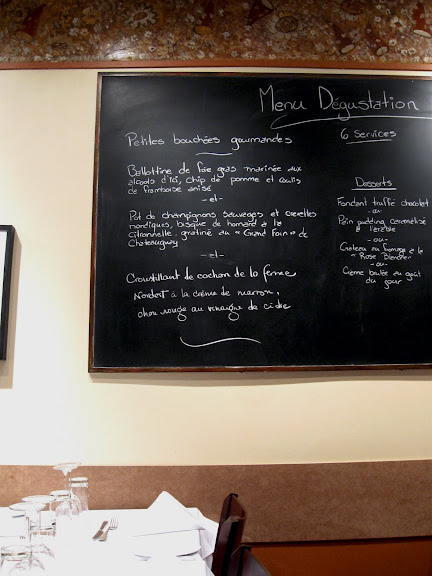 Menu Dégustation
6 Services
Petites bouchées gourmandes
Ballottine de foie gras marinée aux
alcools d'ici, chip de pomme et coulis
de framboise anisé
-et-
Pot de champignons sauvages et crevettes
nordiques, bisque de homard à la
citronnelle gratiné au « Grand Foin » de
Chateauguay
-et-
Croustillant de cochon de la ferme
à la crème de marron,
chou rouge au vinaigre de cidre
Desserts
Fondant truffé chocolat
-ou-
Pain pudding caramélisé
à l'érable
-ou-
Gateau au fromage à la
« Rose Blender »
-ou-
Crème brulée au goût
du jour